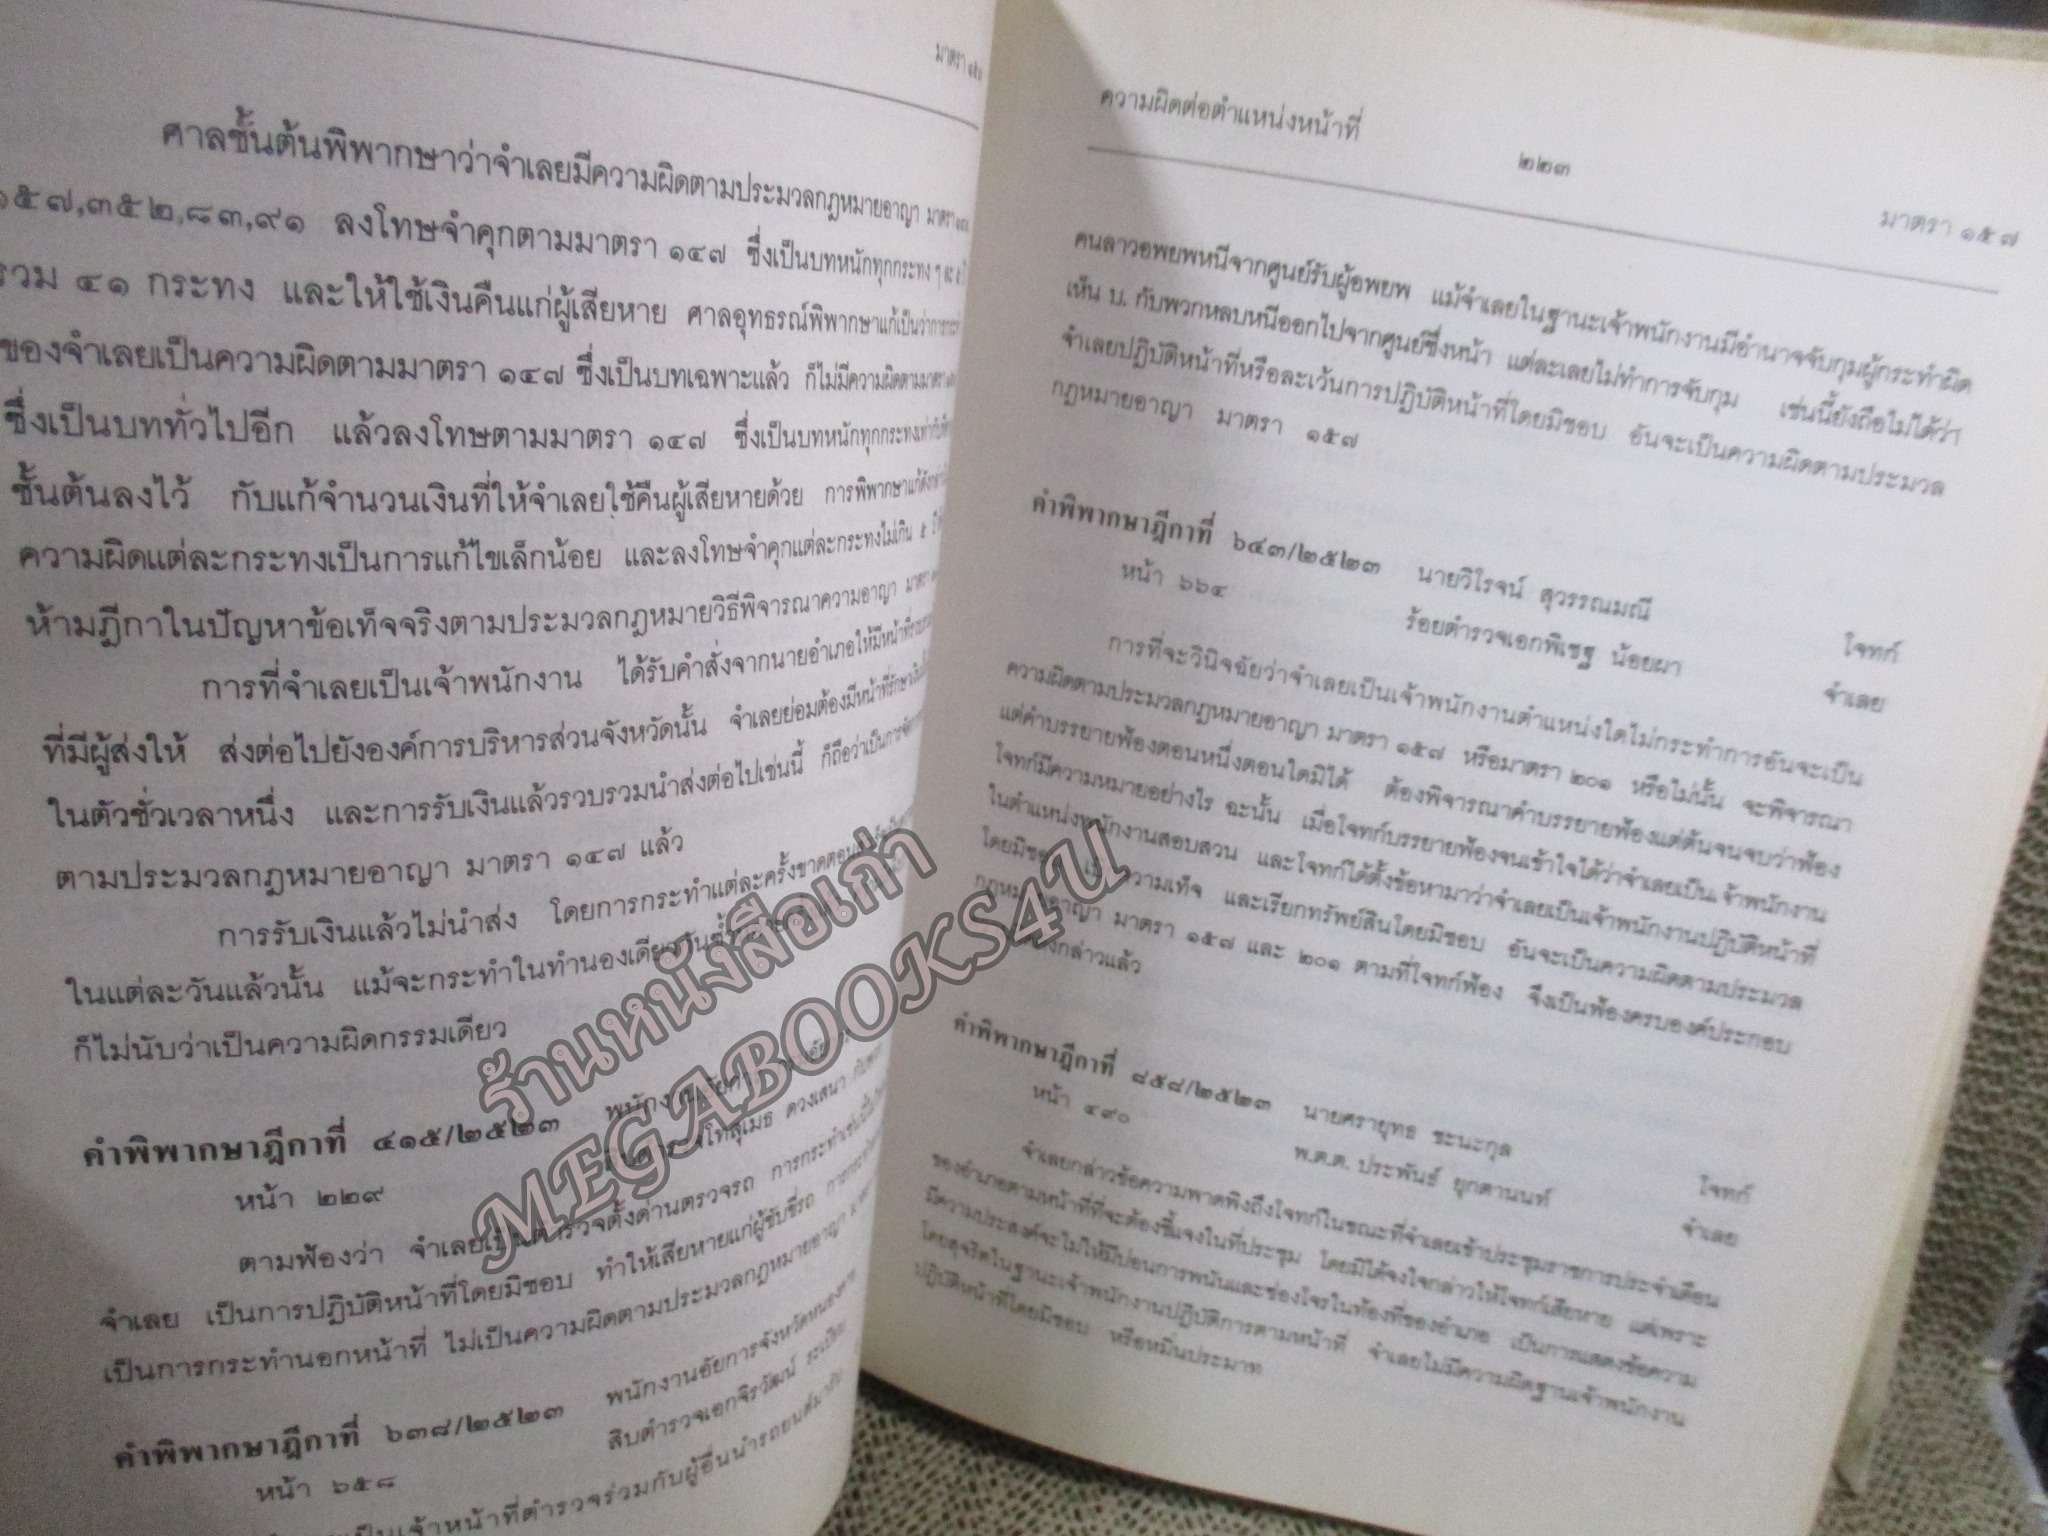 มาตรา
ศาลชั้นต้นพิพากษาว่าจำเลยมีความผิดตามประมวลกฎหมายอาญา มาตรา
๑๕๗,๓๕๒,๘๓,๙๑ ลงโทษจำคุกตามมาตรา ๑๔๗ ซึ่งเป็นบทหนักทุกกระทง ๆ ละ ๕ ปี
รวม ๔๑ กระทง และให้ใช้เงินคืนแก่ผู้เสียหาย ศาลอุทธรณ์พิพากษาแก้เป็นว่าการกระทำ
ของจำเลยเป็นความผิดตามมาตรา ๑๔๗ ซึ่งเป็นบทเฉพาะแล้ว ก็ไม่มีความผิดตามมาตรา
ซึ่งเป็นบททั่วไปอีก แล้วลงโทษตามมาตรา ๑๔๗ ซึ่งเป็นบทหนักทุกกระทงเท่ากับที่
ชั้นต้นลงไว้ กับแก้จำนวนเงินที่ให้จำเลยใช้คืนผู้เสียหายด้วย การพิพากษาแก้ดังกล่าว
ความผิดแต่ละกระทงเป็นการแก้ไขเล็กน้อย และลงโทษจำคุกแต่ละกระทงไม่เกิน ๕ ปี
ห้ามฎีกาในปัญหาข้อเท็จจริงตามประมวลกฎหมายวิธีพิจารณาความอาญา มาตรา
การที่จำเลยเป็นเจ้าพนักงาน ได้รับคำสั่งจากนายอำเภอให้มีหน้าที่
ที่มีผู้ส่งให้ ส่งต่อไปยังองค์การบริหารส่วนจังหวัดนั้น จำเลยย่อมต้องมีหน้าที่รักษาเงิน
ในตัวชั่วเวลาหนึ่ง และการรับเงินแล้วรวบรวมนำส่งต่อไปเช่นนี้ ก็ถือว่าเป็นการจัดการ
ตามประมวลกฎหมายอาญา มาตรา ๑๔๗ แล้ว
การรับเงินแล้วไม่นำส่ง โดยการกระทำแต่ละครั้งขาดตอน
ในแต่ละวันแล้วนั้น แม้จะกระทำในทำนองเดียวกัน
ก็ไม่นับว่าเป็นความผิดกรรมเดียว
คำพิพากษาฎีกาที่ ๔๑๕/๒๕๒๓ พนักงานอัยการ
หน้า ๒๒๙ ดวงเสนา กับพวก
ตามฟ้องว่า จำเลยเป็นตำรวจตั้งด่านตรวจรถ การกระทำเช่นนั้น
จำเลย เป็นการปฏิบัติหน้าที่โดยมิชอบ ทำให้เสียหายแก่ผู้ขับขี่รถ การกระทำ
เป็นการกระทำนอกหน้าที่ ไม่เป็นความผิดตามประมวลกฎหมายอาญา มาตรา
คำพิพากษาฎีกาที่ ๖๓๘/๒๕๒๓ พนักงานอัยการจังหวัดหนองคาย
หน้า ๖๕๘ สิบตำรวจเอกจิรวัฒน์ ระเบียบ
เป็นเจ้าหน้าที่ตำรวจร่วมกับผู้อื่นนำรถยนต์มารับ
ความผิดต่อตำแหน่งหน้าที่
๒๒๓
มาตรา ๑๕๗
คนลาวอพยพหนีจากศูนย์รับผู้อพยพ แม้จำเลยในฐานะเจ้าพนักงานมีอำนาจจับกุมผู้กระทำผิด
เห็น บ. กับพวกหลบหนีออกไปจากศูนย์ซึ่งหน้า แต่ละเลยไม่ทำการจับกุม เช่นนี้ยังถือไม่ได้ว่า
จำเลยปฏิบัติหน้าที่หรือละเว้นการปฏิบัติหน้าที่โดยมิชอบ อันจะเป็นความผิดตามประมวล
กฎหมายอาญา มาตรา ๑๕๗
คำพิพากษาฎีกาที่ ๖๔๓/๒๕๒๓ นายวิโรจน์ สุวรรณมณี โจทก์
หน้า ๖๖๔ ร้อยตำรวจเอกพิเชฐ น้อยผา จำเลย
การที่จะวินิจฉัยว่าจำเลยเป็นเจ้าพนักงานตำแหน่งใดไม่กระทำการอันจะเป็น
ความผิดตามประมวลกฎหมายอาญา มาตรา ๑๕๗ หรือมาตรา ๒๐๑ หรือไม่นั้น จะพิจารณา
แต่คำบรรยายฟ้องตอนหนึ่งตอนใดมิได้ ต้องพิจารณาคำบรรยายฟ้องแต่ต้นจนจบว่าฟ้อง
โจทก์มีความหมายอย่างไร ฉะนั้น เมื่อโจทก์บรรยายฟ้องจนเข้าใจได้ว่าจำเลยเป็นเจ้าพนักงาน
ในตำแหน่งพนักงานสอบสวน และโจทก์ได้ตั้งข้อหามาว่าจำเลยเป็นเจ้าพนักงานปฏิบัติหน้าที่
โดยมิชอบ เป็นความเท็จ และเรียกทรัพย์สินโดยมิชอบ อันจะเป็นความผิดตามประมวล
กฎหมายอาญา มาตรา ๑๕๗ และ ๒๐๑ ตามที่โจทก์ฟ้อง จึงเป็นฟ้องครบองค์ประกอบ
ดังกล่าวแล้ว
คำพิพากษาฎีกาที่ ๘๕๘/๒๕๒๓ นายศรายุทธ ชะนะกุล โจทก์
หน้า ๔๙๐ พ.ต.ต. ประพันธ์ ยุกตานนท์ จำเลย
จำเลยกล่าวข้อความพาดพิงถึงโจทก์ในขณะที่จำเลยเข้าประชุมราชการประจำเดือน
ของอำเภอตามหน้าที่ที่จะต้องชี้แจงในที่ประชุม โดยมิได้จงใจกล่าวให้โจทก์เสียหาย แต่เพราะ
มีความประสงค์จะไม่ให้มีบ่อนการพนันและซ่องโจรในท้องที่ของอำเภอ เป็นการแสดงข้อความ
โดยสุจริตในฐานะเจ้าพนักงานปฏิบัติการตามหน้าที่ จำเลยไม่มีความผิดฐานเจ้าพนักงาน
ปฏิบัติหน้าที่โดยมิชอบ หรือหมิ่นประมาท
ร้านหนังสือเก่า
MEGABOOKS4U